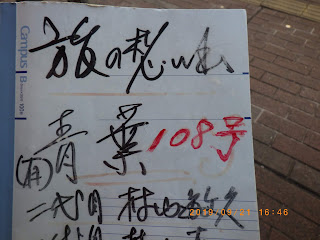 Campus
旅の想い出
青葉108号
(有)
二代目 村山敏久
2013/09/21 16:46